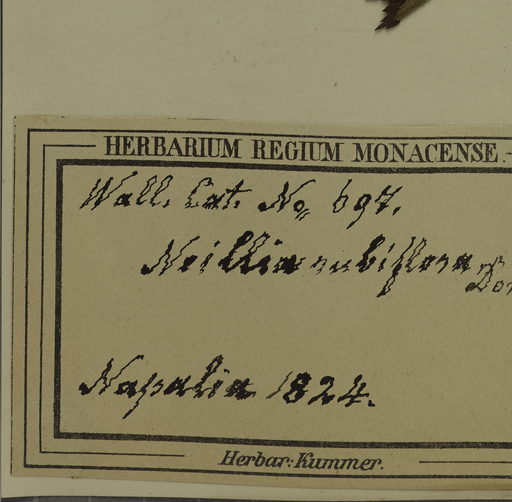 HERBARIUM REGIUM MONACENSE.
Wall. Cat. No 697.
Neillia rubiflora Don
Napalia 1824.
Herbar: Kummer.